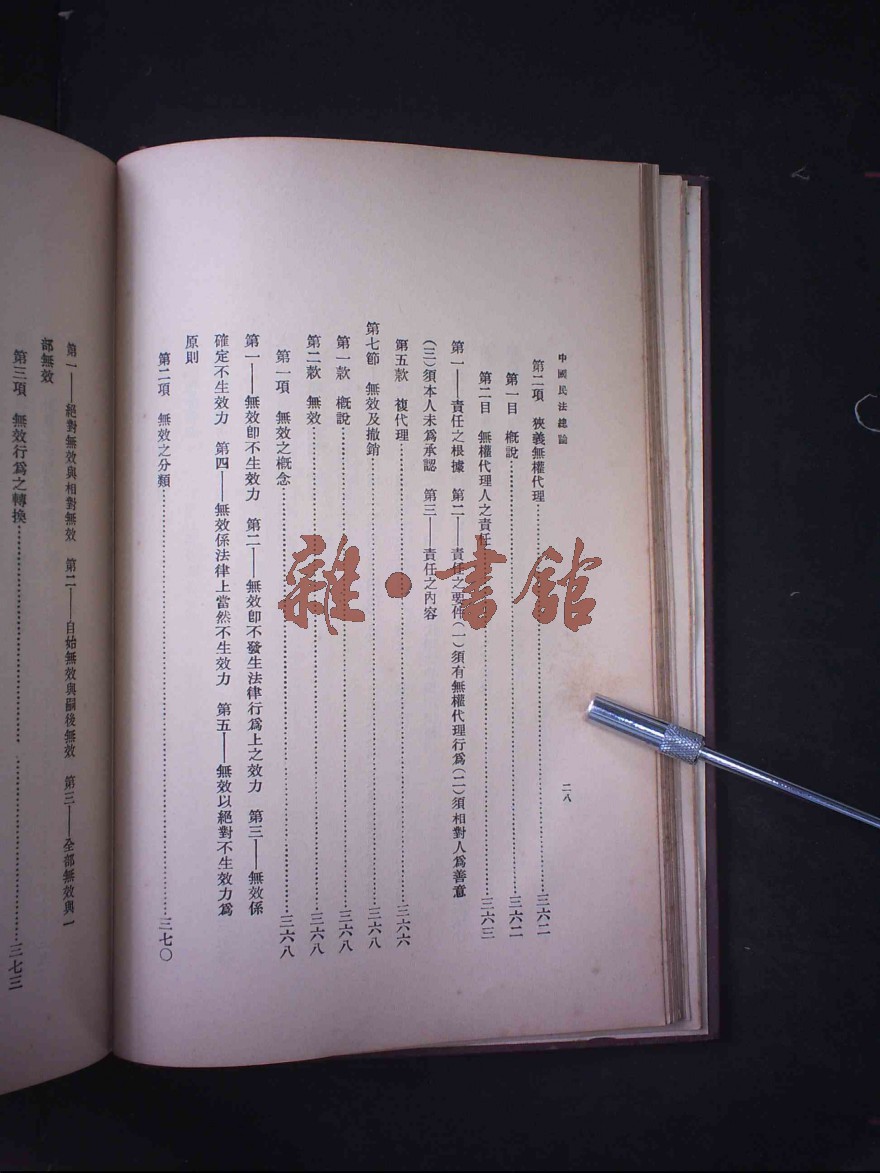 中國民法總論
二八
第二項　狹義無權代理………三六二
第一目　概說………三六二
第二目　無權代理人之責任………三六三
第一——責任之根據　第二——責任之要件(一)須有無權代理行爲(二)須相對人爲善意
(三)須本人未爲承認　第三——責任之內容
第五款　複代理………三六六
第七節　無效及撤銷………三六八
第一款　概說………三六八
第二款　無效………三六八
第一項　無效之概念………三六八
第一——無效卽不生效力　第二——無效卽不發生法律行爲上之效力　第三——無效係
確定不生效力　第四——無效係法律上當然不生效力　第五——無效以絕對不生效力爲
原則
第二項　無效之分類………三七〇
第一——絕對無效與相對無效　第二——自始無效與嗣後無效　第三——全部無效與一
部無效
第三項　無效行爲之轉換………三七三
雜·書館